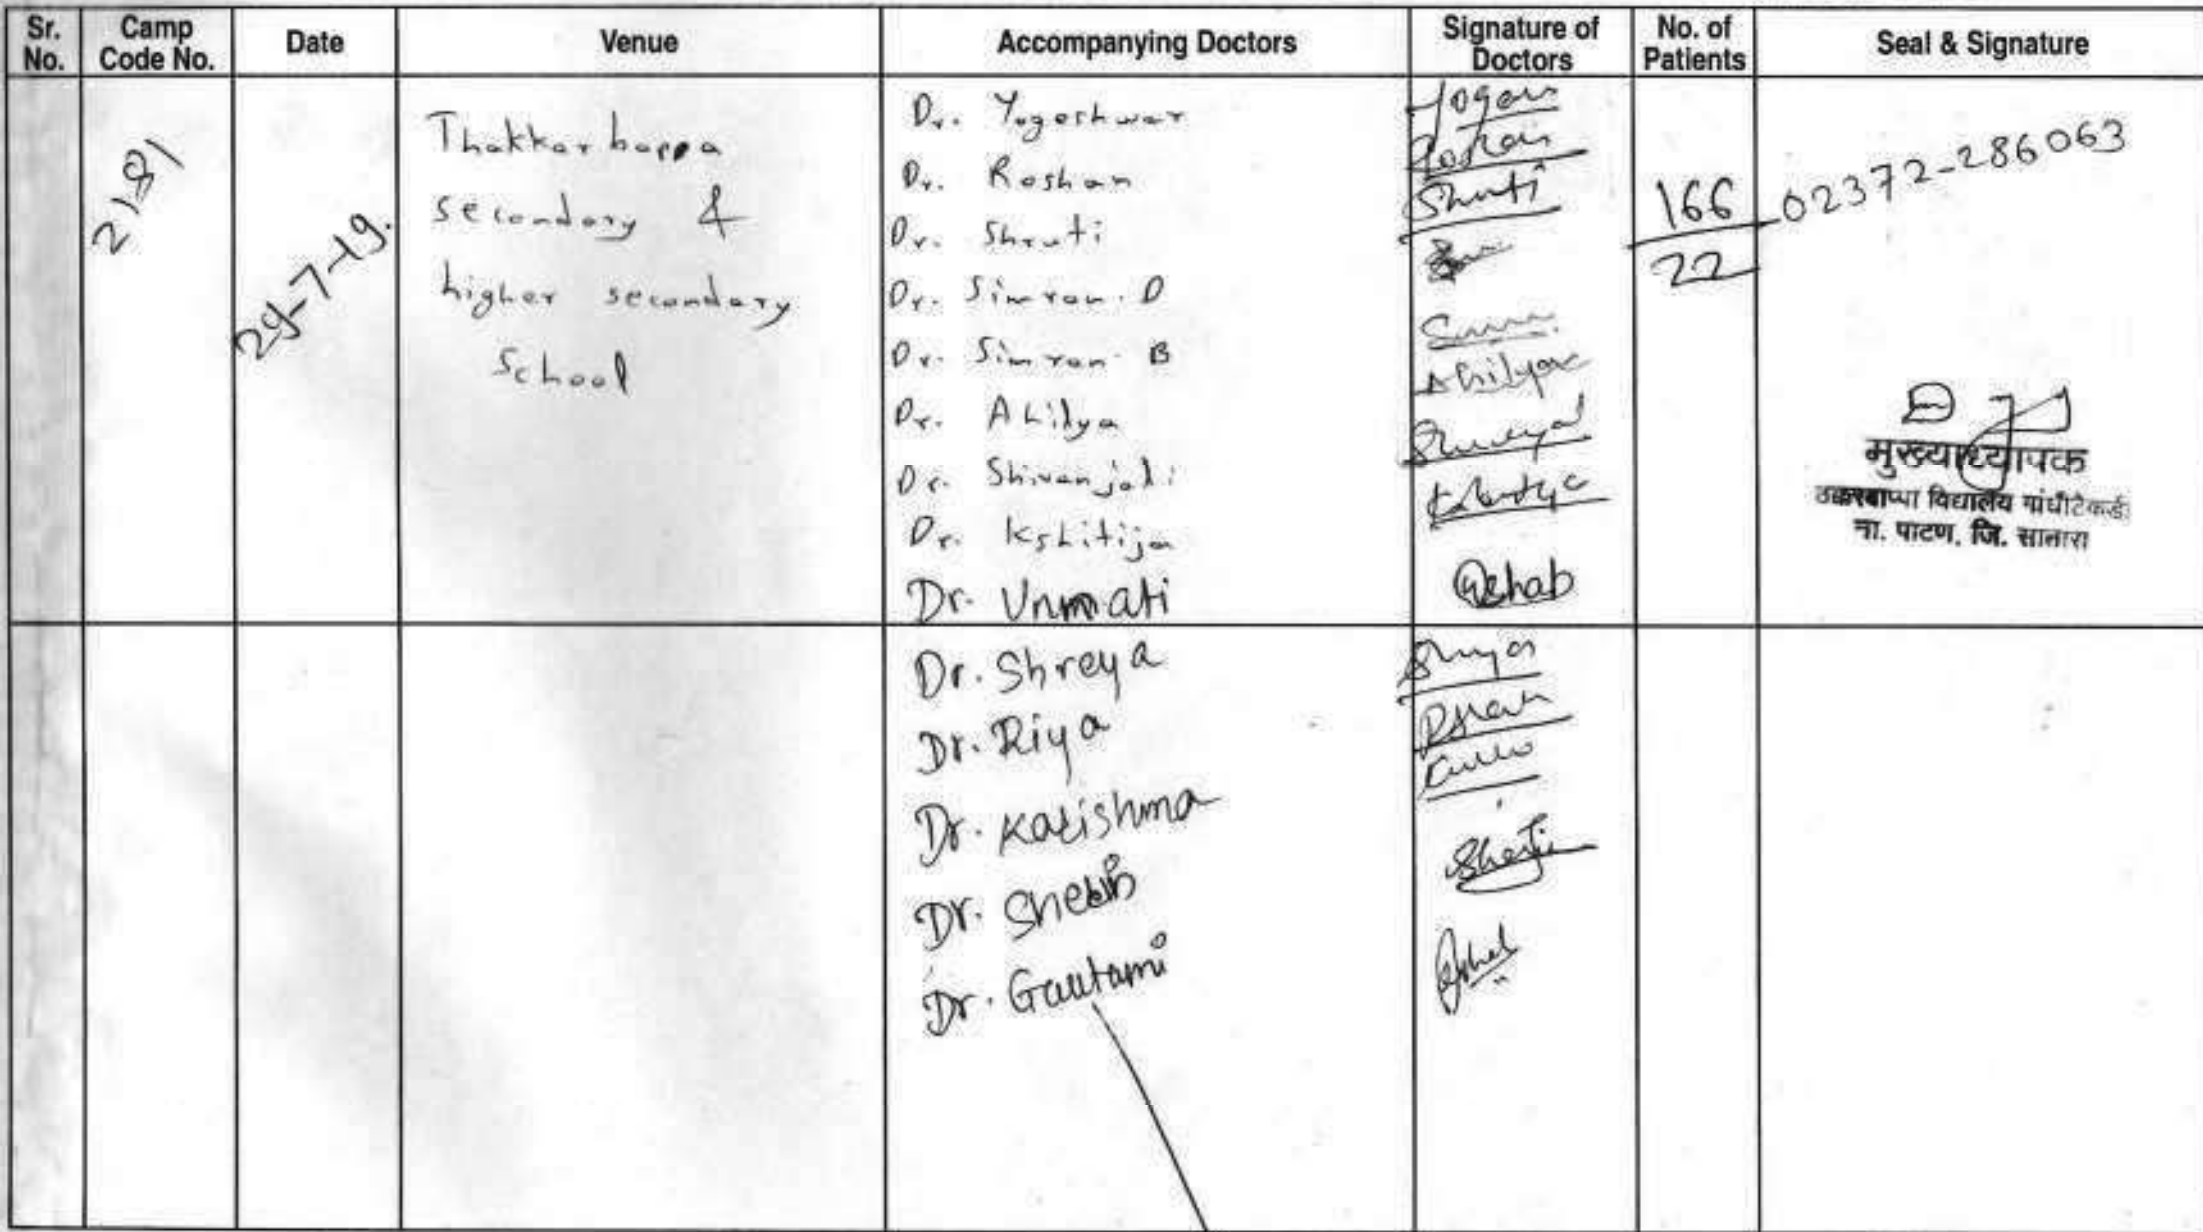 Sr. No. Camp Code No. Date Venue Accompanying Doctors Signature of Doctors No. of Patients Seal & Signature
2181
29-7-19.
Thakkarbappa
secondary &
higher secondary
School
Dr. Yogeshwar
Dr. Roshan
Dr. Shruti
Dr. Simran. D
Dr. Simran. B
Dr. Ahilya
Dr. Shivanjali
Dr. Kshitija
Dr. Unmati
Shruti
Ahilya
166
22
02372-286063
मुख्याध्यापक
ठक्करबाप्पा विद्यालय गांधीटेकडी
ता. पाटण, जि. सातारा
Dr. Shreya
Dr. Riya
Dr. Karishma
Dr.
Dr. Gautami
Shreya